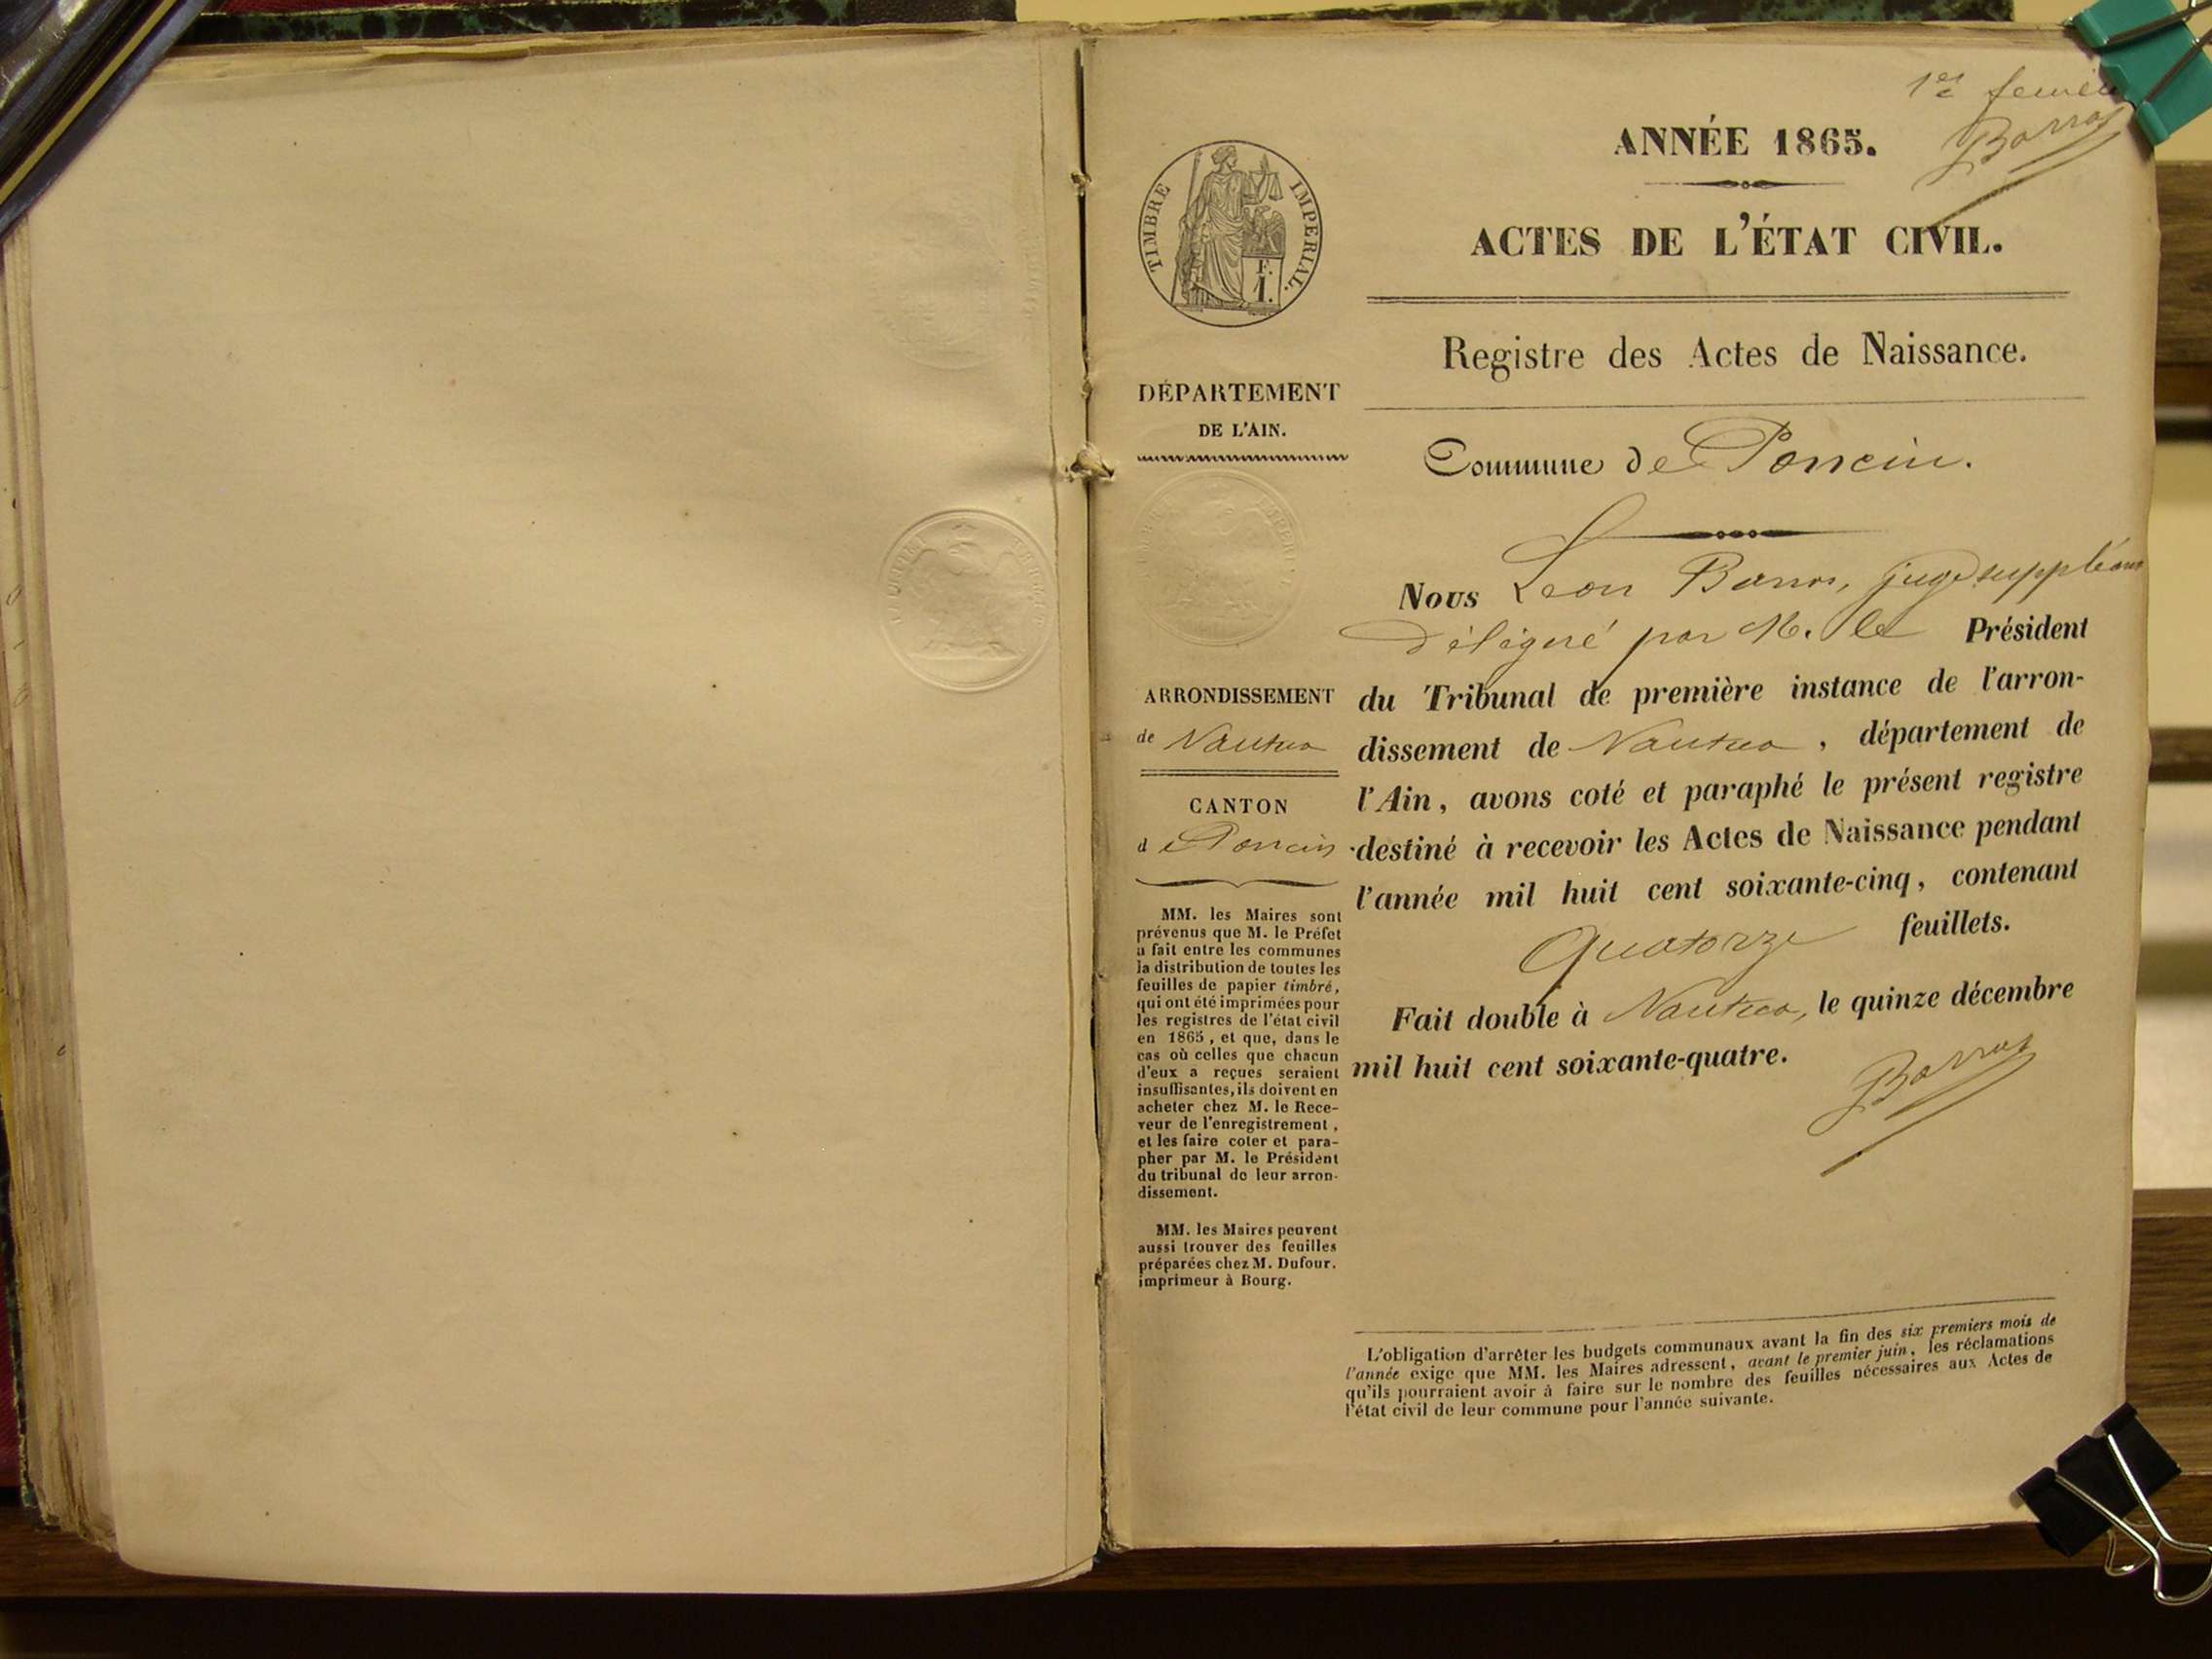 1er feuillet
Barros
ANNÉE 1865.
ACTES DE L'ÉTAT CIVIL.
TIMBRE IMPÉRIAL.
F.
1.
Registre des Actes de Naissance.
DÉPARTEMENT
DE L'AIN.
Commune de Poncin.
Nous Léon Barros, juge suppléant
délégué par M. le Président
du Tribunal de première instance de l'arron-
dissement de Nantua, département de
l'Ain, avons coté et paraphé le présent registre
destiné à recevoir les Actes de Naissance pendant
l'année mil huit cent soixante-cinq, contenant
Quatorze feuillets.
Fait double à Nantua, le quinze décembre
mil huit cent soixante-quatre.
Barros
ARRONDISSEMENT
de Nantua
CANTON
de Poncin
MM. les Maires sont
prévenus que M. le Préfet
a fait entre les communes
la distribution de toutes les
feuilles de papier timbré,
qui ont été imprimées pour
les registres de l'état civil
en 1865, et que, dans le
cas où celles que chacun
d'eux a reçues seraient
insuffisantes, ils doivent en
acheter chez M. le Rece-
veur de l'enregistrement,
et les faire coter et para-
pher par M. le Président
du tribunal de leur arron-
dissement.
MM. les Maires peuvent
aussi trouver des feuilles
préparées chez M. Dufour.
imprimeur à Bourg.
L'obligation d'arrêter les budgets communaux avant la fin des six premiers mois de
l'année exige que MM. les Maires adressent, avant le premier juin, les réclamations
qu'ils pourraient avoir à faire sur le nombre des feuilles nécessaires aux Actes de
l'état civil de leur commune pour l'année suivante.